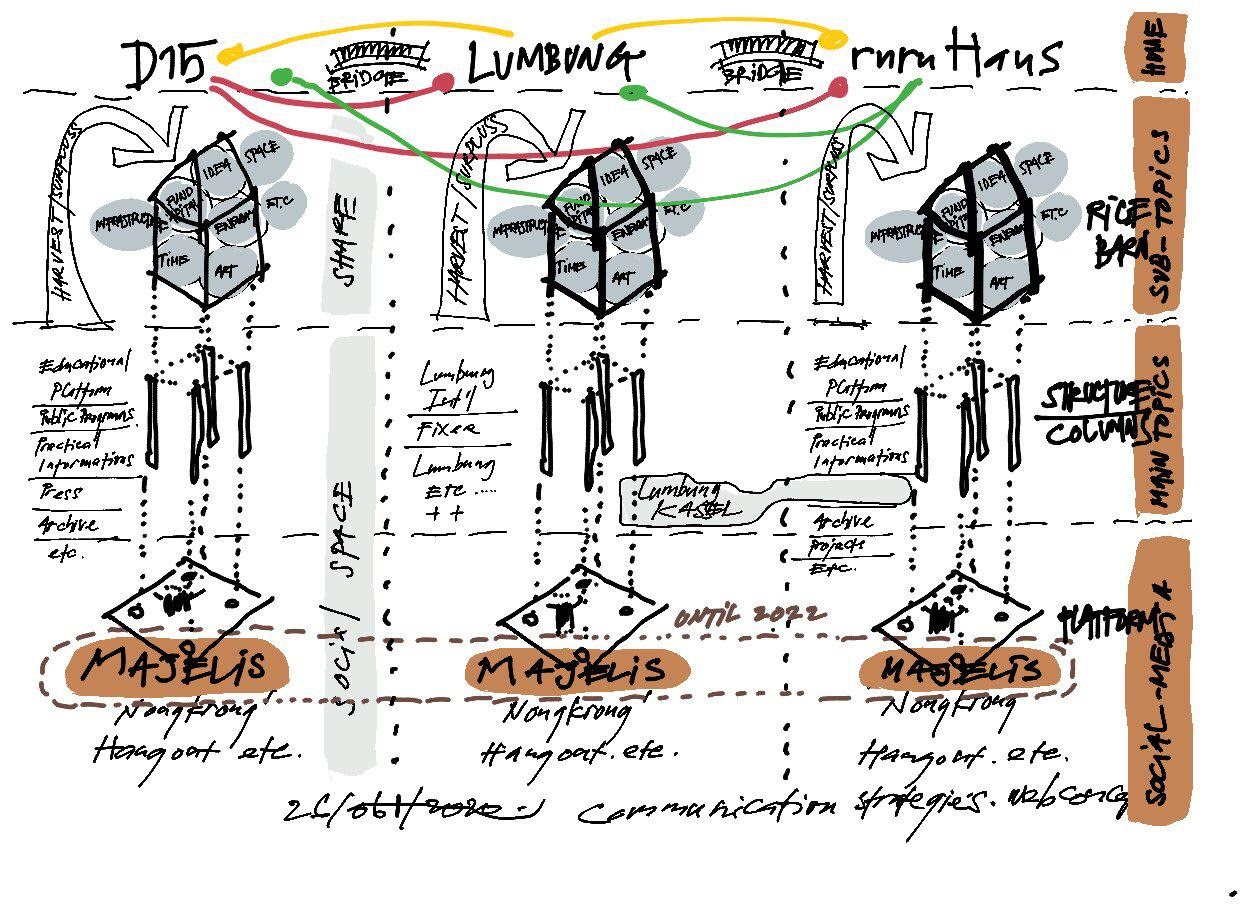 D15
BRIDGE
LUMBUNG
BRIDGE
ruruHaus
HOME
HARVEST/SURPLUSS
IDEA
SPACE
FUND
INFRASTRUCT
ETC
TIME
ART
SHARE
HARVEST/SURPLUSS
IDEA
SPACE
FUND
INFRASTRUCT
ETC
TIME
ART
HARVEST/SURPLUSS
IDEA
SPACE
FUND
INFRASTRUCT
ETC
TIME
ART
RICE
BARN
SUB-TOPICS
Educational
Platform
Public Programs
Practical
Informations
Press
Archive
etc.
SOCIAL/ SPACE
Lumbung
Int'l
Fixer
Lumbung
ETC ....
+ +
Lumbung
KASSEL
Educational
Platform
Public Programs
Practical
Informations
Archive
Projects
Etc.
STRUCTURE
COLUMNS
MAIN TOPICS
UNTIL 2022
PLATFORM
MAJELIS
MAJELIS
MAJELIS
Nongkrong
Hangout etc.
Nongkrong
Hangout. etc.
Nongkrong
Hangout. etc.
SOCIAL-MEDIA
Communication strategies.